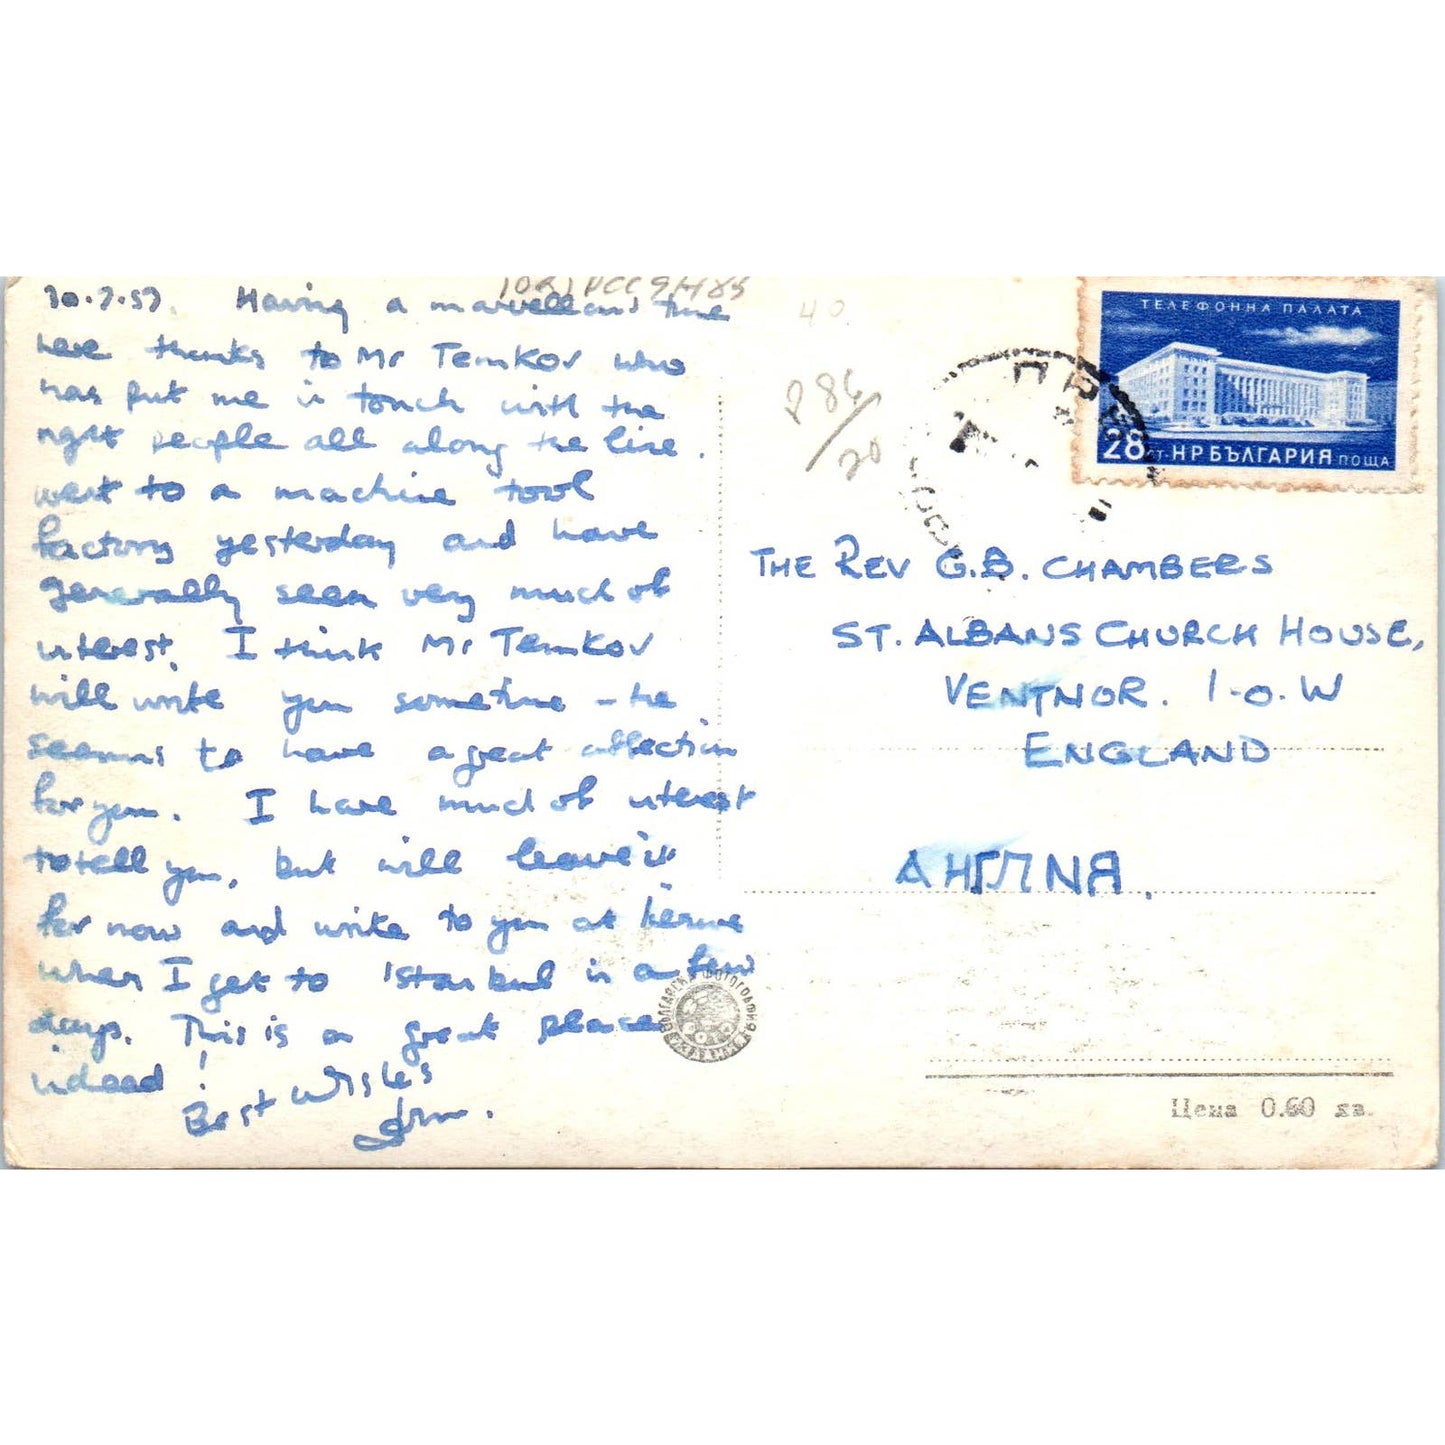 10R1PCC9H85
30.7.57. Having a marvellous time
here thanks to Mr Temkov who
has put me in touch with the
right people all along the line.
went to a machine tool
factory yesterday and have
generally seen very much of
interest. I think Mr Temkov
will write you sometime - he
seems to have a great affection
for you. I have much of interest
to tell you, but will leave it
for now and write to you at
when I get to Istanbul in a few
days. This is a great place
indeed!
Best Wishes
40
286/20
ТЕЛЕФОННА ПАЛАТА
28 СТ. НР БЪЛГАРИЯ ПОЩА
THE REV G.B. CHAMBERS
ST. ALBANS CHURCH HOUSE,
VENTNOR. I-O-W
ENGLAND
АНГЛNЯ.
Цена 0.60 лв.